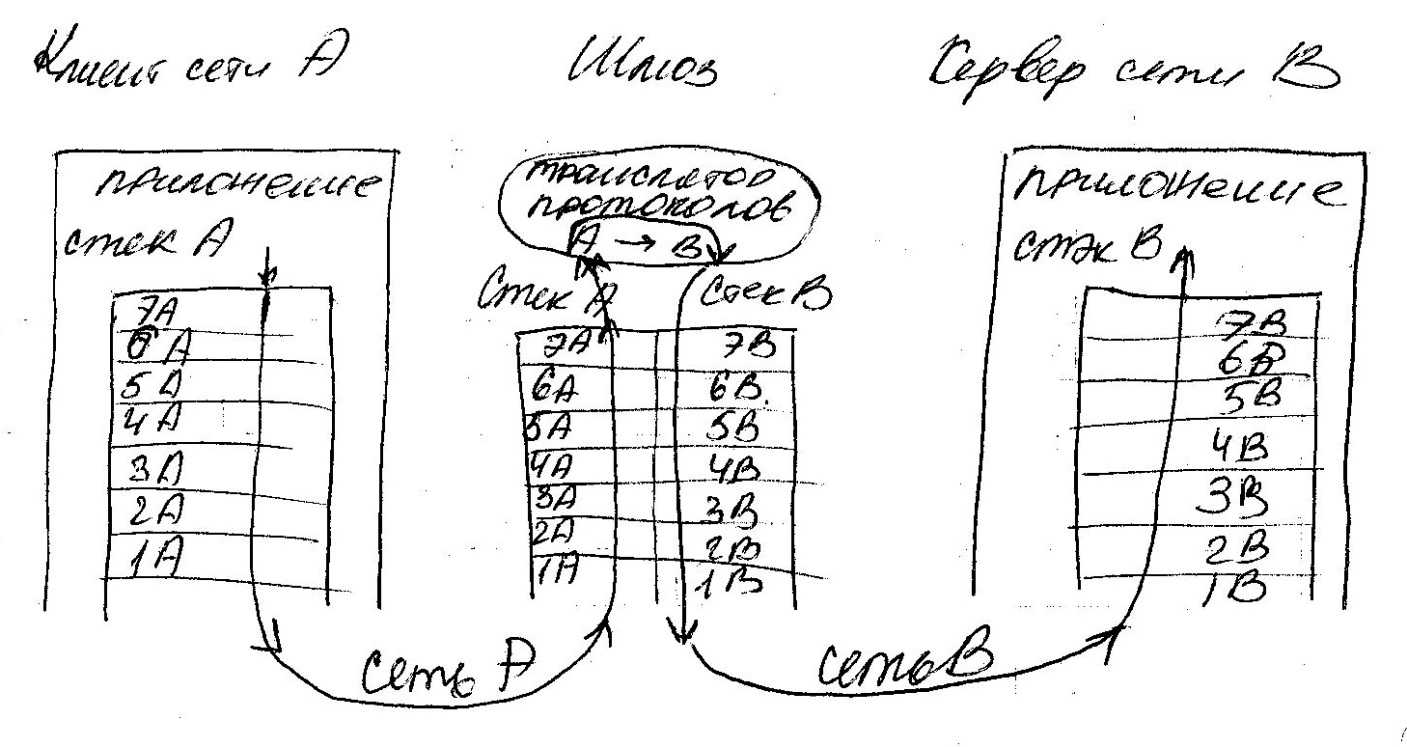 Клиент сети А
Шлюз
Сервер сети В
приложение
стек А
7А
6А
5А
4А
3А
2А
1А
транслятор
протоколов
А → В
Стек А
стек В
7А
7В
6А
6В.
5А
5В
4А
4В
3А
3В
2А
2В
1А
1В
приложение
стэк В
7В
6В
5В
4В
3В
2В
1В
сеть А
сеть В